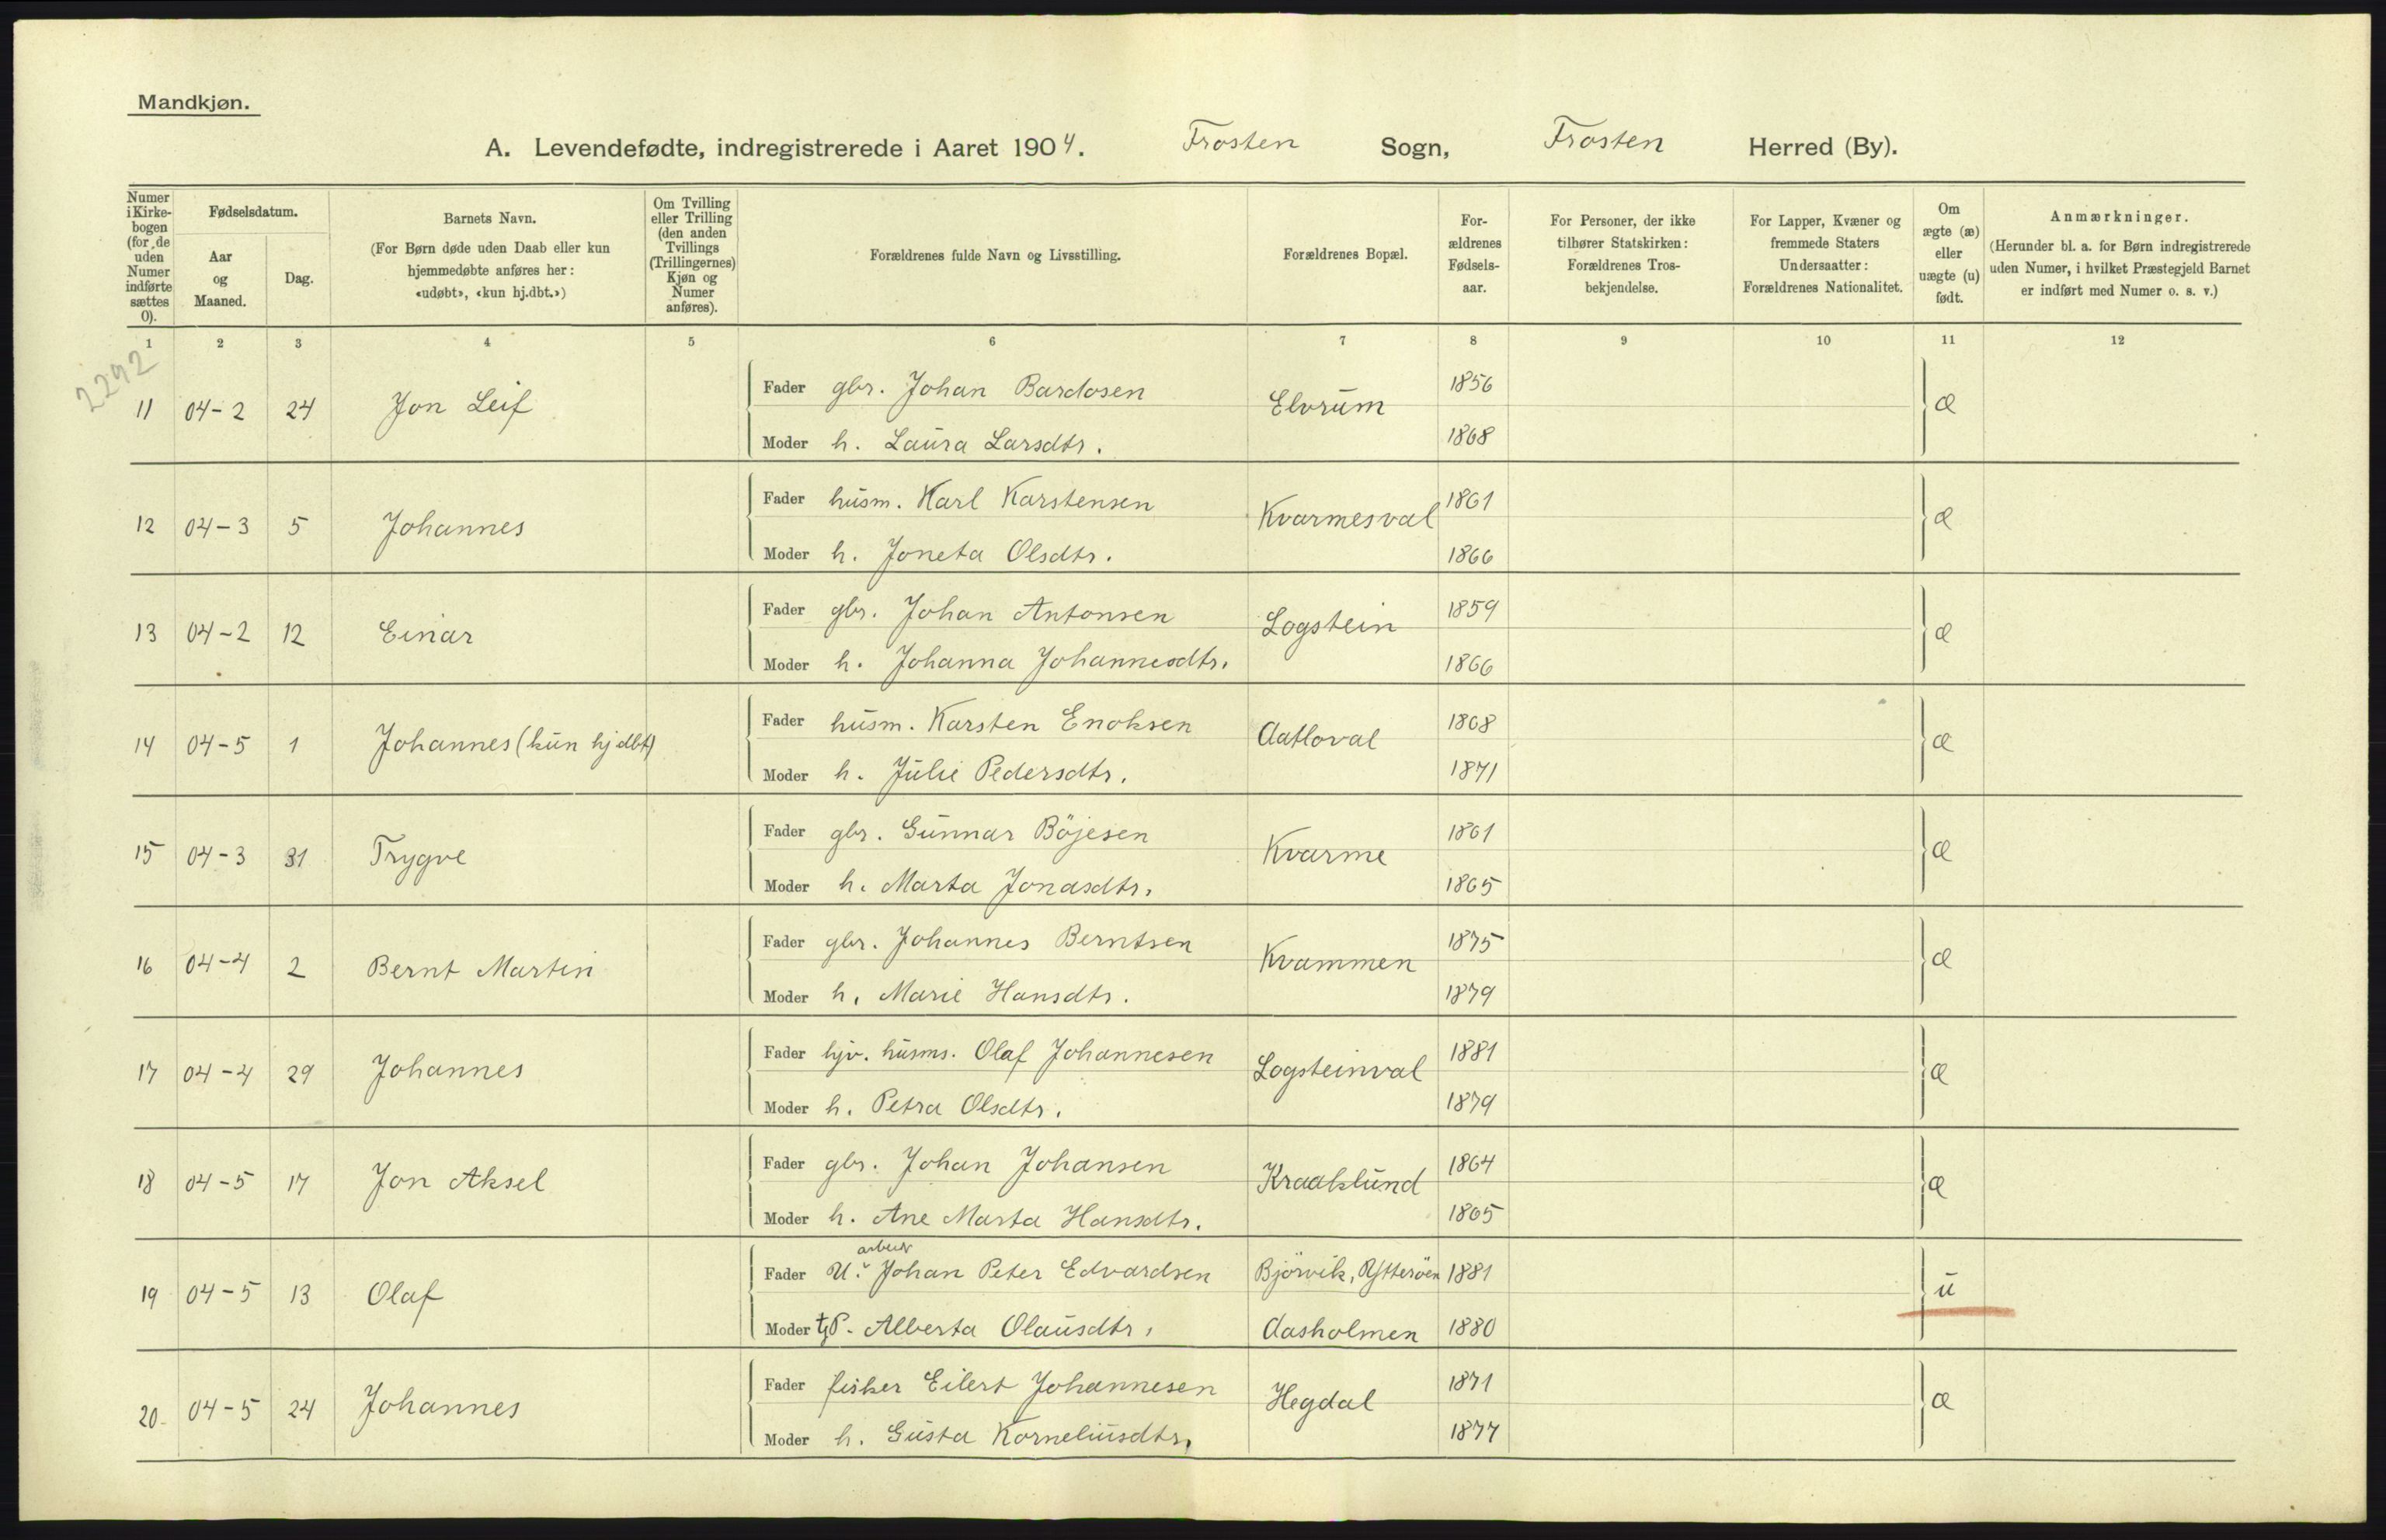 Mandkjøn.
A. Levendefødte, indregistrerede i Aaret 1904. Frosten Sogn, Frosten Herred (By).
Numer i Kirkebogen (for de uden Numer indførte sættes 0).
Fødselsdatum.
Aar og Maaned.
Dag.
Barnets Navn.
(For Børn døde uden Daab eller kun hjemmedøbte anføres her: «udøbt», «kun hj.dbt.»)
Om Tvilling eller Trilling (den anden Tvillings (Trillingernes) Kjøn og Numer anføres).
Forældrenes fulde Navn og Livsstilling.
Forældrenes Bopæl.
Forældrenes Fødselsaar.
For Personer, der ikke tilhører Statskirken: Forældrenes Trosbekjendelse.
For Lapper, Kvæner og fremmede Staters Undersaatter: Forældrenes Nationalitet.
Om ægte (æ) eller uægte (u) født.
Anmærkninger.
(Herunder bl. a. for Børn indregistrerede uden Numer, i hvilket Præstegjeld Barnet er indført med Numer o. s. v.)
1 2 3 4 5 6 7 8 9 10 11 12
2292
11 04-2 24 Jon Leif Fader gbr. Johan Bardosen Elvrum 1856 æ
Moder h. Laura Larsdtr. 1868
12 04-3 5 Johannes Fader husm. Karl Karstensen Kvarmesval 1861 æ
Moder h. Joneta Olsdtr. 1866
13 04-2 12 Einar Fader gbr. Johan Antonsen Logstein 1859 æ
Moder h. Johanna Johannesdtr. 1866
14 04-5 1 Johannes (kun hjdbt) Fader husm. Karsten Enoksen Aatloval 1868 æ
Moder h. Julie Pedersdtr. 1871
15 04-3 31 Trygve Fader gbr. Gunnar Böjesen Kvarme 1861 æ
Moder h. Marta Jonasdtr. 1865
16 04-4 2 Bernt Martin Fader gbr. Johannes Berntsen Kvammen 1875 æ
Moder h. Marie Hansdtr. 1879
17 04-4 29 Johannes Fader hjv. husms. Olaf Johannesen Logsteinval 1881 æ
Moder h. Petra Olsdtr. 1879
18 04-5 17 Jon Aksel Fader gbr. Johan Johansen Kraaklund 1864 æ
Moder h. Ane Marta Hansdtr. 1865
19 04-5 13 Olaf Fader U. arbeid Johan Peter Edvardsen Björvik, Ytteröen 1881 u
Moder tj P. Alberta Olausdtr. Aasholmen 1880
20. 04-5 24 Johannes Fader fisker Eilert Johannesen Hegdal 1871 æ
Moder h. Gusta Korneliusdtr. 1877